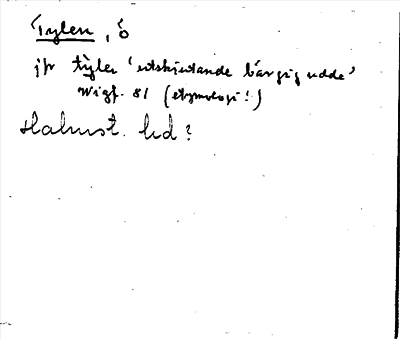 Tylen, ö
jfr tyler 'utskjutande bärgig udde'
Wigf. 81 (etymologi!)
Halmst. hd?